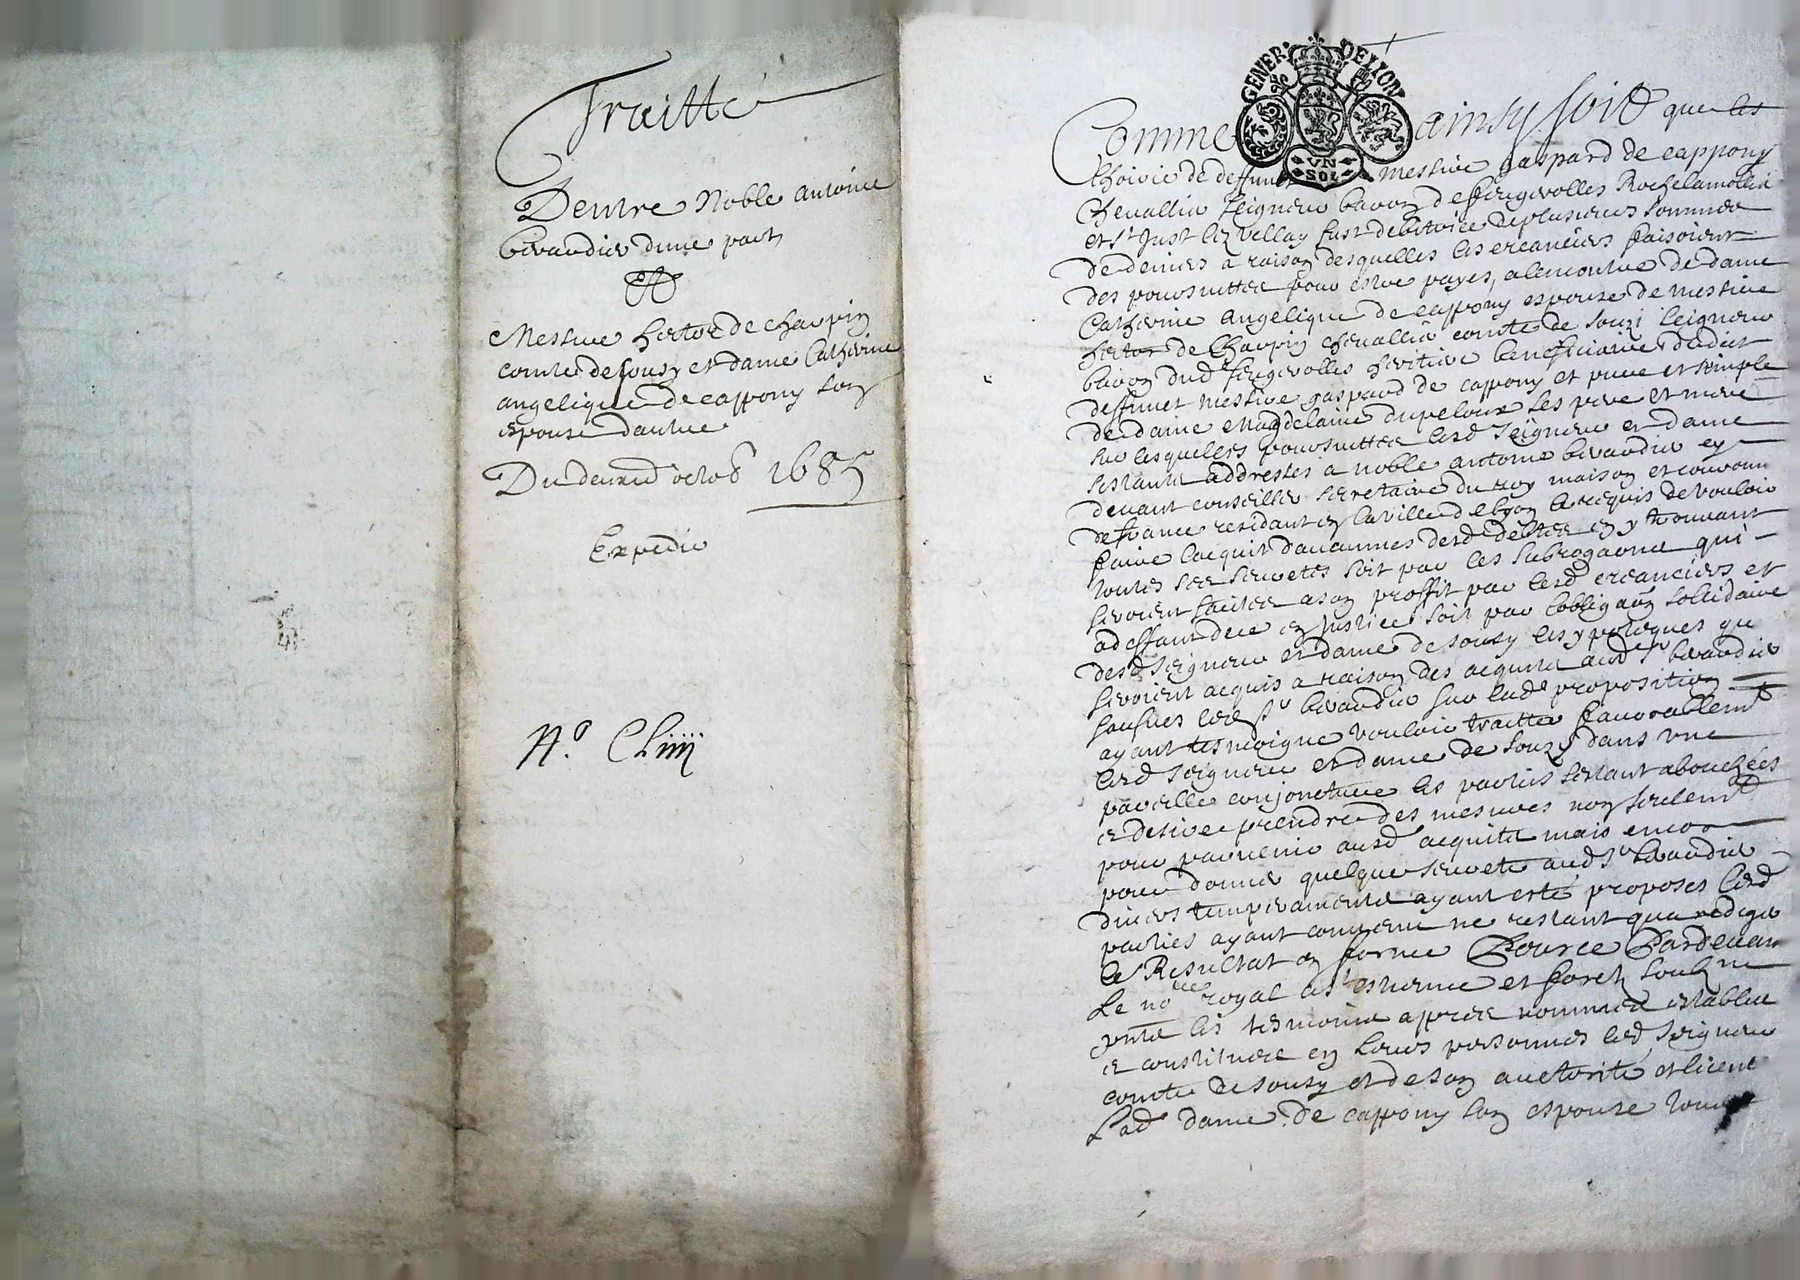 Traitté
Dentre Noble antoine
beraudier dune part
Et
Messire hector de charpin
comte de souzy et dame Catherine
angelique de cappony son
espouze dautre
Du deuxie octob 1685
Expedié
N.º Cliiij
GENER. DE LYON
UN
SOL
Comme ainsy soit que les
hoirie de deffunct messire gaspard de cappony
Chevallier seigneur baron de feugerolles Rochelamollie
et st Just lez vellay fust debitrice de plusieurs sommes
de deniers a raison desquelles les creanciers faisoient
des poursuittes pour estre payes, a lencontre de dame
Catherine angelique de cappony espouze de messire
hector de Charpin chevallier comte de souzi seigneur
baron dud feugerolles heritiere beneficiaire dudict
deffunct messire gaspard de cappony et pure et simple
de dame magdelaine dupeloux ses pere et mere
sur lesquelles poursuittes lesd seigneur et dame
sestants addresses a noble antoine beraudier cy
devant conseiller secretaire du roy maison et couronne
de france residant en la ville de lyon le requis de vouloir
faire lacquit daucunnes desd debtes en y trouvant
toutes ses seuretes soit par les subrogaons qui
seroient faites a son proffit par lesd creanciers et
a deffaut dece en justice soit par lobligaon sollidaire
desd seigneur et dame de souzy les ypoteques qui
seroient acquis a raison des acquits aud sr beraudier
lesd sr beraudier sur lade proposition
ayant tesmoigne vouloir traitter favorablemt
lesd seigneur et dame de souzy dans une
pareille conjoncture les parties sestant abouchées
et desire prendre des mesures non seulemt
pour parvenir ausd acquits mais encor
pour donner quelque seurete aud sr beraudier
divers temperaments ayant esté proposes lesd
parties ayant convenu ne restant qua rediger
le Resultat en forme Pource Pardevant
Le nore royal a st estienne et forez soubzne
pnts les tesmoins apprés nommes establis
et constitués en leurs personnes led seigneur
comte de souzy et de son auctorité et licence
Lad dame de cappony son espouze